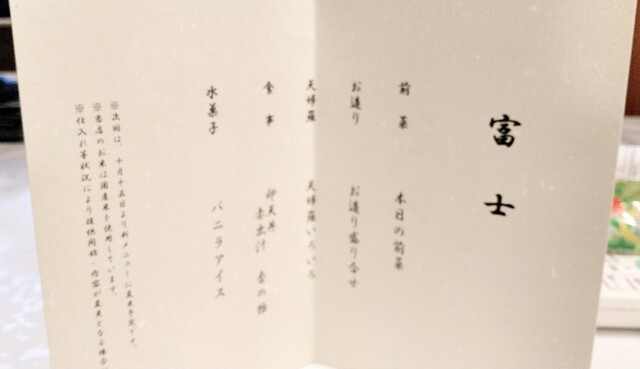 富士
前菜 本日の前菜
お造り お造り盛り合せ
天婦羅 天婦羅いろいろ
食事 卵天丼
赤出汁 香の物
水菓子 バニラアイス
※次回は、十月十五日より新メニューに変更予定です。
※当店のお米は国産米を使用しています。
※仕入れ等状況により提供開始・内容が変更となる場合